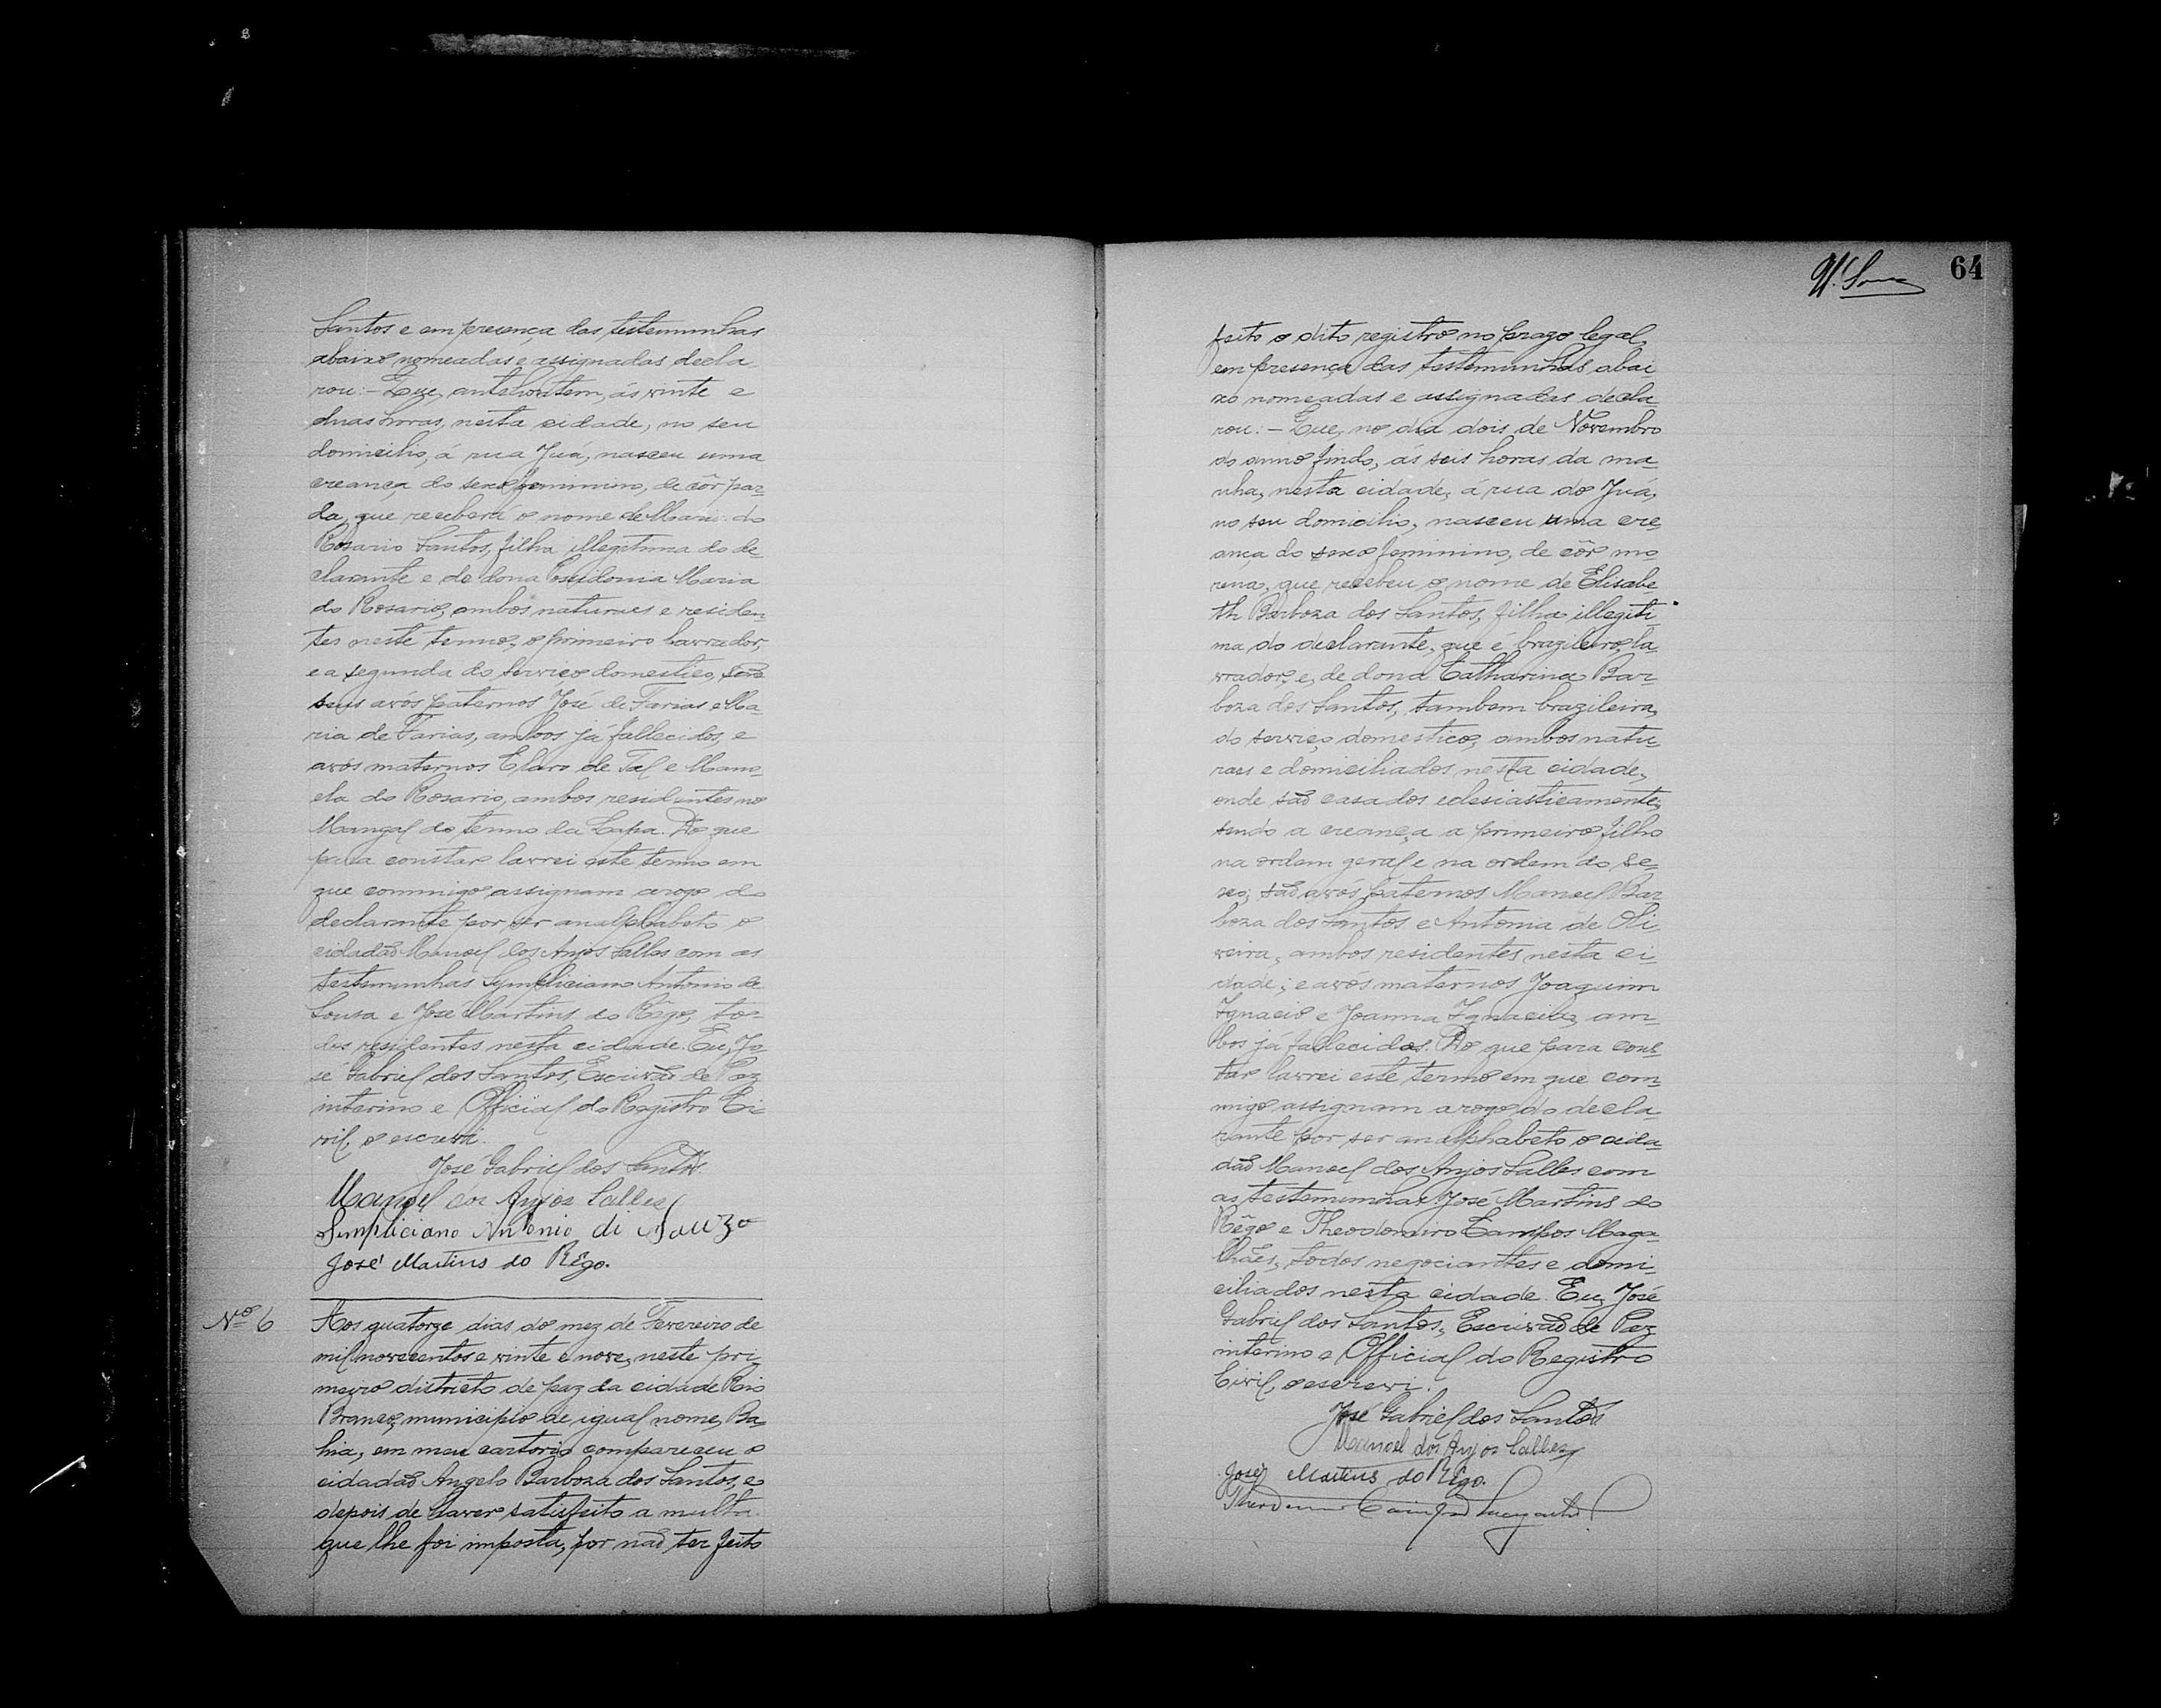 Santos e em presença das testemunhas
abaixo nomeadas e assignadas decla
rou:- Que, antehontem, ás vinte e
duas horas, nesta cidade, no seu
domicilio, á rua Juá, nasceu uma
creança do sexo feminino, de côr par-
da, que receberá o nome de Maria do
Rosario Santos, filha illegitima do de
clarante e de dona Possidonia Maria
do Rosario, ambos naturaes e residen-
tes neste termo, o primeiro lavrador,
e a segunda do serviço domestico, são
seus avós paternos José de Farias e Ma-
ria de Farias, ambos já fallecidos, e
avós maternos Claro de Tal e Mano-
ela do Rosario, ambos residentes no
Mangal do termo da Lapa. Do que
para constar lavrei este termo em
que commigo assignam arogo do
declarante por ser analphabeto o
cidadão Manoel dos Anjos Salles com as
testemunhas Sympliciano Antonio de
Sousa e José Martins do Rêgo, to-
dos residentes nesta cidade. Eu, Jo
sé Gabriel dos Santos, Escrivão de Paz
interino e Official do Registro Ci-
vil, o escrevi.
José Gabriel dos Santos
Manoel dos Anjos Salles
Simpliciano Antonio di Souza
José Martins do Rêgo.
Nº 6
Aos quatorze dias do mez de Fevereiro de
mil novecentos e vinte e nove, neste pri-
meiro districto de paz da cidade Rio
Branco, municipio de igual nome, Ba-
hia, em meu cartorio compareceu o
cidadão Angelo Barboza dos Santos, e
depois de haver satisfeito a multa
que lhe foi imposta, por não ter feito
64
feito o dito registro no prazo legal,
em presença das testemunhas abai
xo nomeadas e assignadas decla
rou:- Que, no dia dois de Novembro
do anno findo, ás seis horas da ma-
nha, nesta cidade, á rua do Juá,
no seu domicilio, nasceu uma cre-
ança do sexo feminino, de côr mo
rena, que recebeu o nome de Elisabe-
th Barboza dos Santos, filha illegiti
ma do declarante, que é brazileiro, la-
vrador, e, de dona Catharina Bar-
boza dos Santos, tambem brazileira,
do serviço domestico, ambos natu
raes e domiciliados nesta cidade,
onde são casados eclesiasticamente,
sendo a creança a primeiro filho
na ordem geral e na ordem do se-
xo; são avós paternos Manoel Bar
boza dos Santos e Antonia de Oli
veira, ambos residentes nesta ci-
dade; e avós maternos Joaquim
Ignacio e Joanna Ignacia, am-
bos já fallecidos. Do que para cons
tar lavrei este termo em que com-
migo assignam arogo do decla-
rante por ser analphabeto o cida-
dão Manoel dos Anjos Salles com
as testemunhas José Martins do
Rêgo e Theodomiro Campos Maga-
lhães, todos negociantes e domi-
ciliados nesta cidade. Eu, José
Gabriel dos Santos, Escrivão de Paz
interino e Official do Registro
Civil, o escrevi.
José Gabriel dos Santos
Manoel dos Anjos Salles
José Martins do Rêgo.